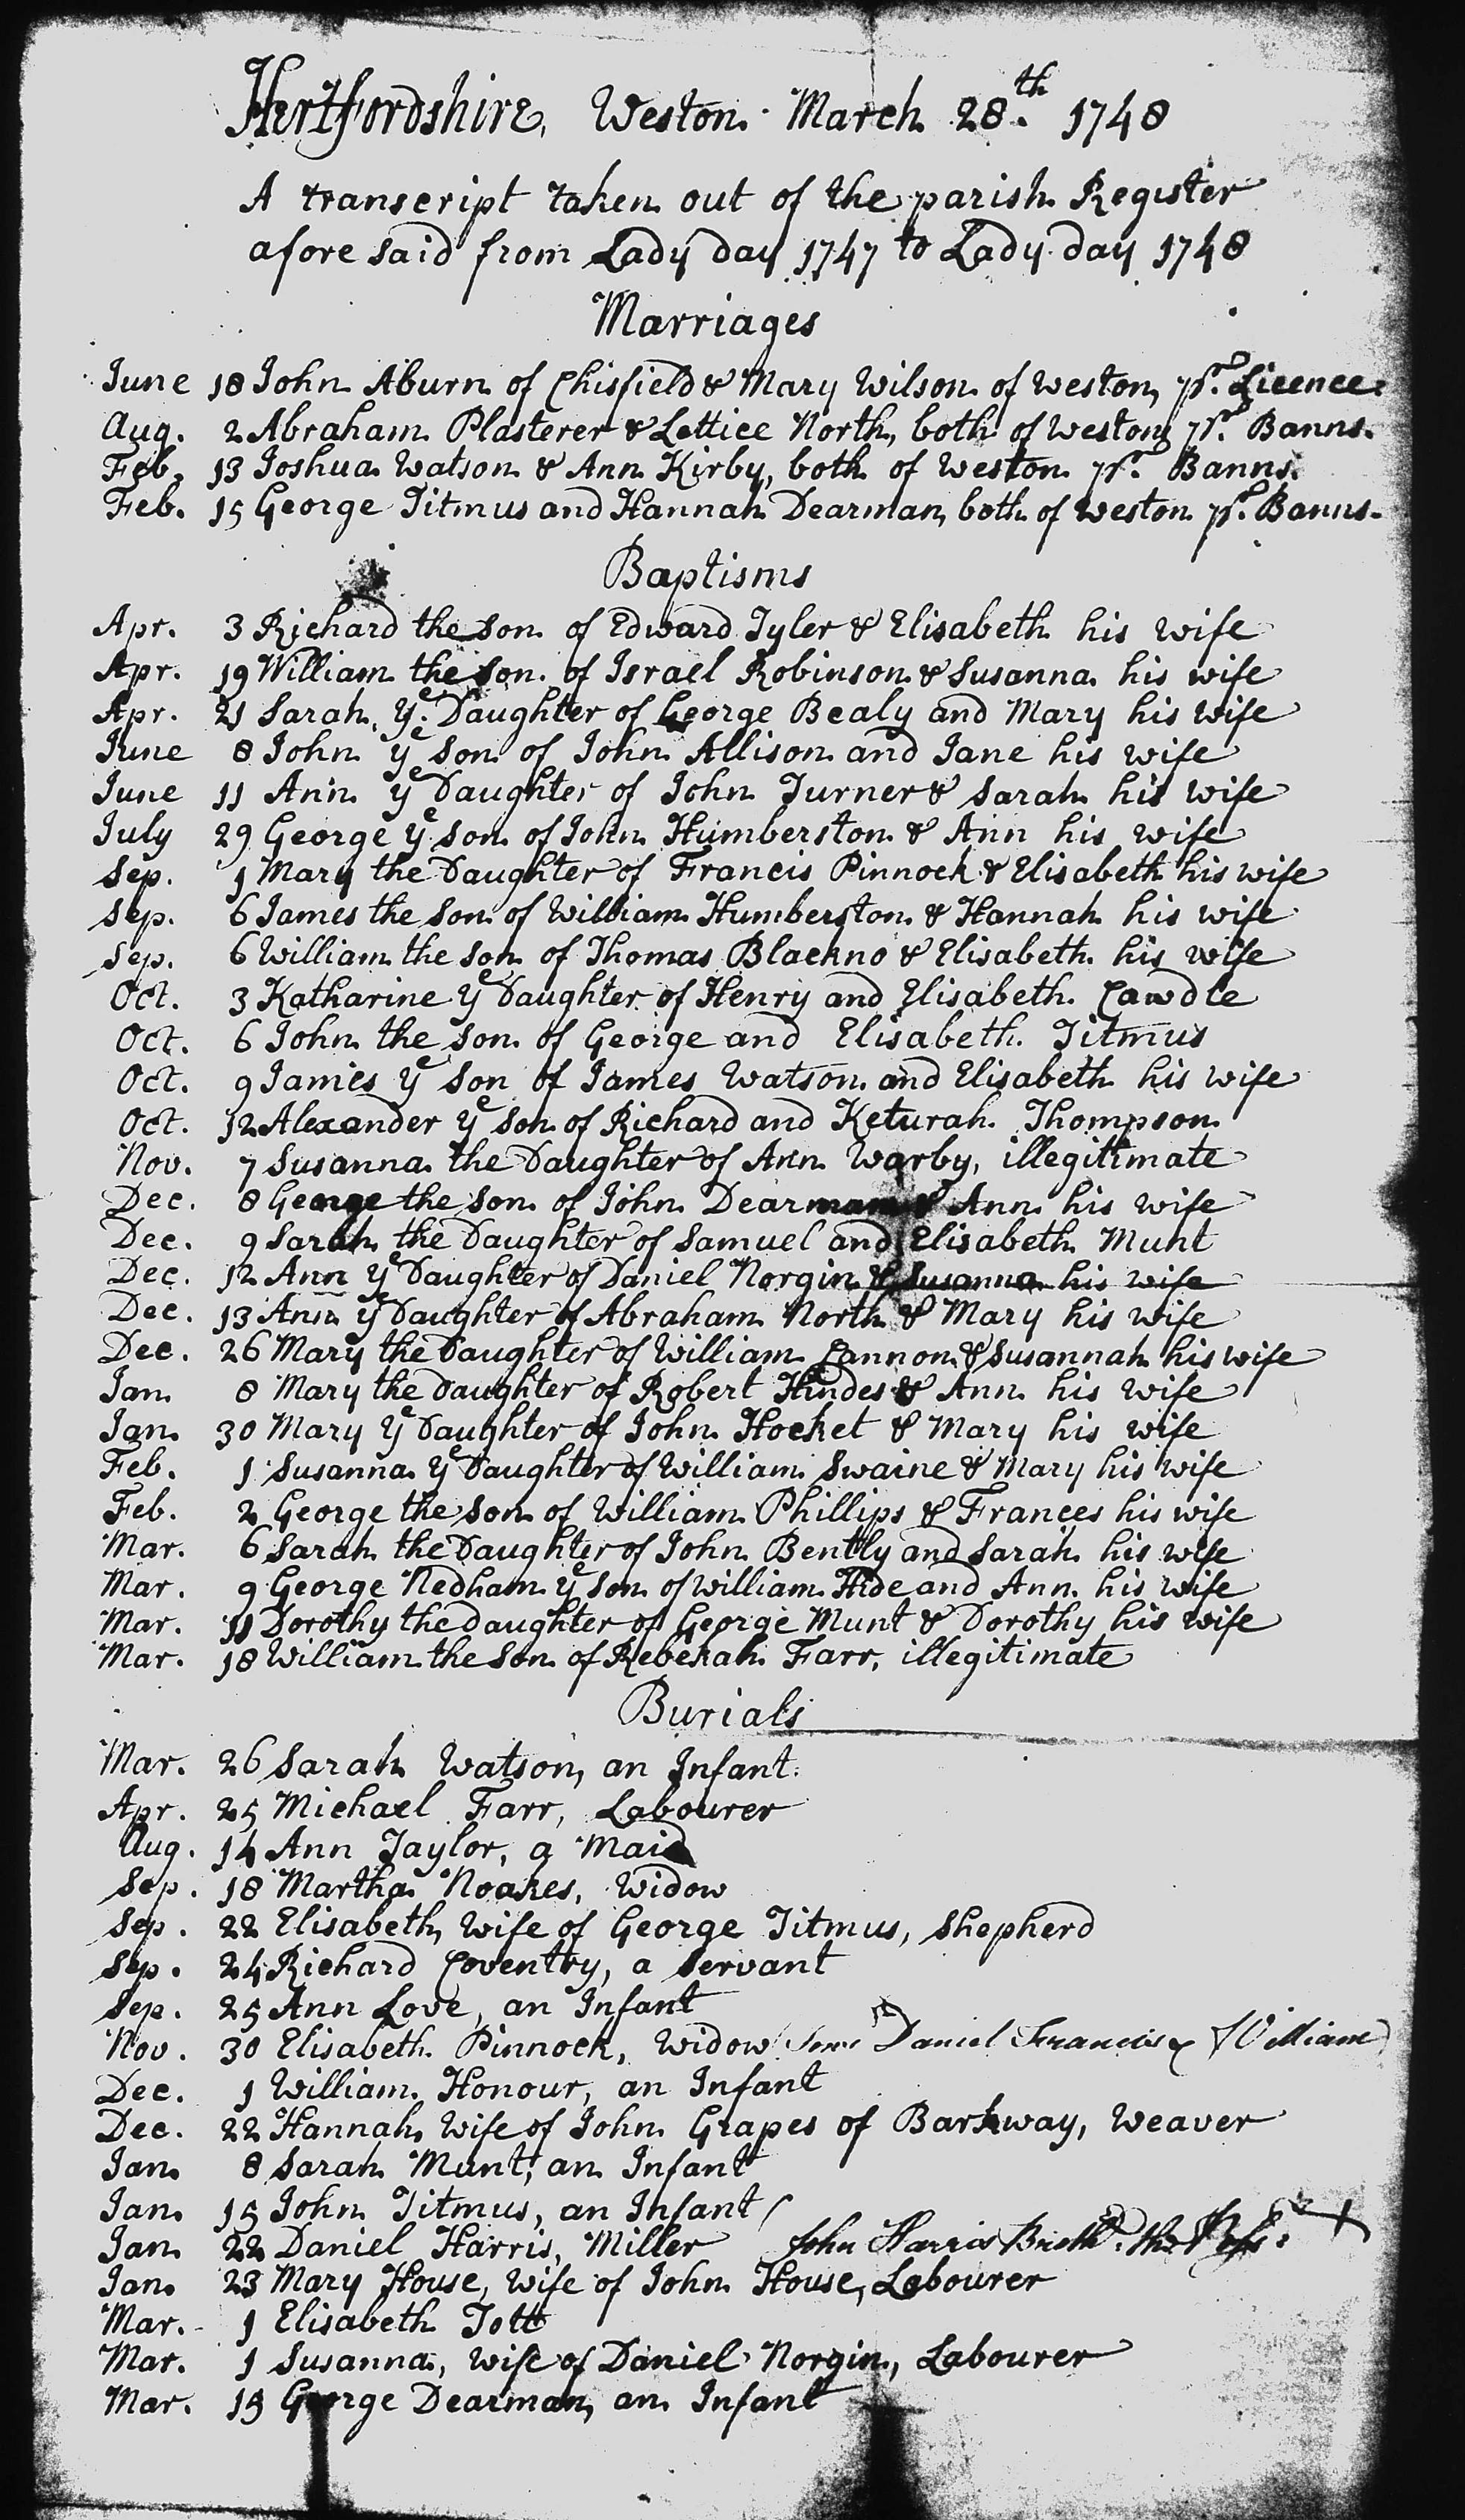 Hertfordshire, Weston. March 28.th 1748
A transcript taken out of the parish Register
afore said from Lady day 1747 to Lady day 1748
Marriages
June 18 John Aburn of Chisfield & Mary Wilson of Weston, pr. Licence.
Aug. 2 Abraham Plasterer & Lettice North, both of Weston pr. Banns.
Feb. 13 Joshua Watson & Ann Kirby, both of Weston pr. Banns.
Feb. 15 George Titmus and Hannah Dearman, both of Weston pr. Banns.
Baptisms
Apr. 3 Richard the Son of Edward Tyler & Elisabeth his wife
Apr. 19 William the Son of Israel Robinson & Susanna his wife
Apr. 21 Sarah ye Daughter of George Bealy and Mary his wife
June 8 John ye Son of John Allison and Jane his wife
June 11 Ann ye Daughter of John Turner & Sarah his wife
July 29 George ye Son of John Humberston & Ann his wife
Sep. 1 Mary the Daughter of Francis Pinnock & Elisabeth his wife
Sep. 6 James the Son of William Humberston & Hannah his wife
Sep. 6 William the Son of Thomas Blackno & Elisabeth his wife
Oct. 3 Katharine ye Daughter of Henry and Elisabeth Cawdle
Oct. 6 John the Son of George and Elisabeth Titmus
Oct. 9 James ye Son of James Watson and Elisabeth his wife
Oct. 12 Alexander ye Son of Richard and Keturah Thompson
Nov. 7 Susanna the Daughter of Ann Warby, illegitimate
Dec. 8 George the Son of John Dearman & Ann his wife
Dec. 9 Sarah the Daughter of Samuel and Elisabeth Munt
Dec. 12 Ann ye Daughter of Daniel Norgin & Susanna his wife
Dec. 13 Ann ye Daughter of Abraham North & Mary his wife
Dec. 26 Mary the Daughter of William Cannon & Susannah his wife
Jan. 8 Mary the Daughter of Robert Hindes & Ann his wife
Jan. 30 Mary ye Daughter of John Hocket & Mary his wife
Feb. 1 Susanna ye Daughter of William Swaine & Mary his wife
Feb. 2 George the Son of William Phillips & Frances his wife
Mar. 6 Sarah the Daughter of John Bently and Sarah his wife
Mar. 9 George Nedham ye Son of William Hide and Ann his wife
Mar. 11 Dorothy the Daughter of George Munt & Dorothy his wife
Mar. 18 William the Son of Rebekah Farr, illegitimate
Burials
Mar. 26 Sarah Watson, an Infant.
Apr. 25 Michael Farr, Labourer
Aug. 14 Ann Taylor, a Maid
Sep. 18 Martha Noakes, Widow
Sep. 22 Elisabeth, Wife of George Titmus, Shepherd
Sep. 24 Richard Coventry, a Servant
Sep. 25 Ann Love, an Infant
Nov. 30 Elisabeth Pinnock, Widow Daniel Francis & William
Dec. 1 William Honour, an Infant
Dec. 22 Hannah, Wife of John Grapes of Barkway, Weaver
Jan. 8 Sarah Munt, an Infant
Jan. 15 John Titmus, an Infant
Jan. 22 Daniel Harris, Miller John Harris
Jan. 23 Mary House, Wife of John House, Labourer
Mar. 1 Elisabeth Tott
Mar. 1 Susanna, Wife of Daniel Norgin, Labourer
Mar. 15 George Dearman, an Infant